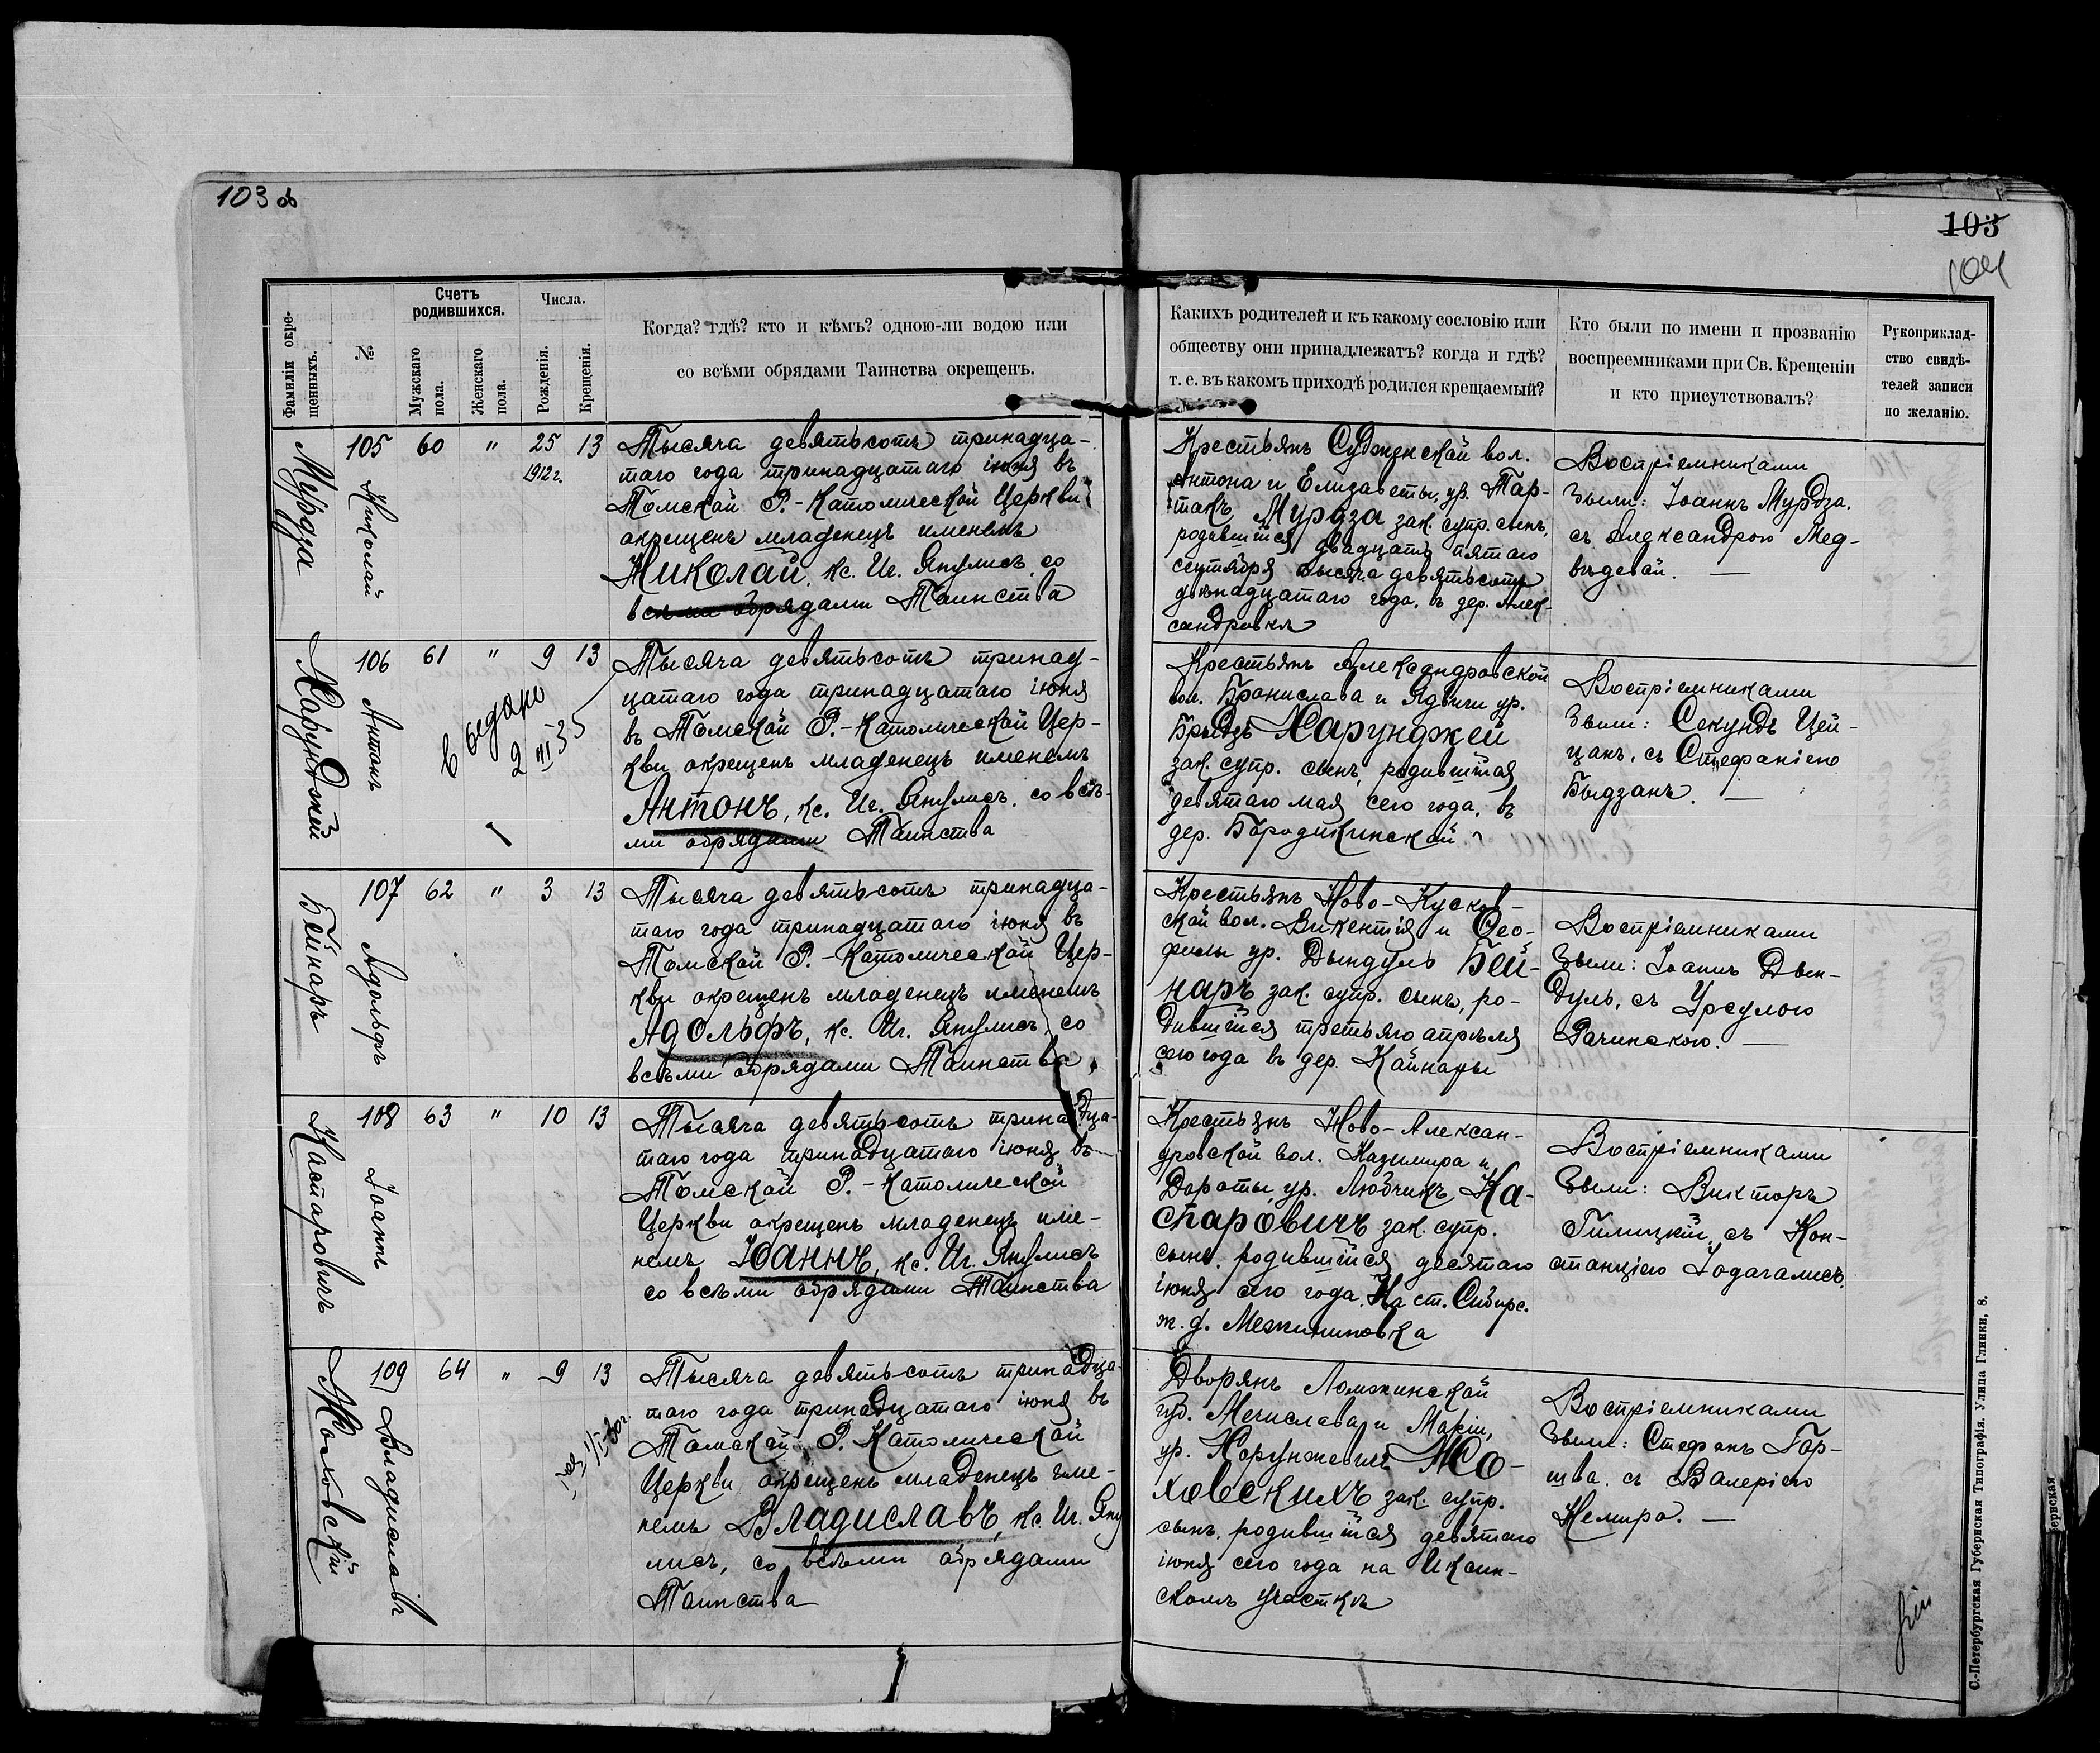 103 об
103
104
Фамиліи окре-
щенныхъ.
№
Счетъ
родившихся.
Мужскаго
пола.
Женскаго
пола.
Числа.
Рожденія.
Крещенія.
Когда? гдѣ? кто и кѣмъ? одною-ли водою или
со всѣми обрядами Таинства окрещенъ.
Какихъ родителей и къ какому сословію или
обществу они принадлежатъ? когда и гдѣ?
т. е. въ какомъ приходѣ родился крещаемый?
Кто были по имени и прозванію
воспреемниками при Св. Крещеніи
и кто присутствовалъ?
Рукоприклад-
ство свидѣ-
телей записи
по желанію.
Мурдза
105
Николай
60 " 25 13
1912 г.
Тысяча девятьсотъ тринадца-
таго года тринадцатаго іюня въ
Томской Р.-Католической Церкви
окрещенъ младенецъ именемъ
Николай, кс. Иг. Янулисъ, со
всѣми обрядами Таинства
Крестьянъ Судженской вол.
Антона и Елизаветы, ур. Тар-
такъ Мурдза зак. супр. сынъ,
родившійся двадцать пятаго
сентября тысяча девятьсотъ
двѣнадцатаго года, въ дер. Алек-
сандровкѣ
Воспріемниками
были: Іоаннъ Мурдза.
съ Александрою Мед-
вѣдевой. —
Харунджей
106
Антонъ
61 " 9 13
Выдано
2 XI 35
Тысяча девятьсотъ тринад-
цатаго года тринадцатаго іюня
въ Томской Р.-Католической Цер-
кви окрещенъ младенецъ именемъ
Антонъ, кс. Иг. Янулисъ, со всѣ-
ми обрядами Таинства
Крестьянъ Александровской
вол. Бронислава и Ядвиги ур.
Брыдзъ Харунджей
зак. супр. сынъ, родившійся
девятаго мая сего года, въ
дер. Бородинской
Воспріемниками
были: Секундъ Цей-
цанъ, съ Стефаніею
Быдзанъ. —
Бейнаръ
107
Адольфъ
62 " 3 13
Тысяча девятьсотъ тринадца-
таго года тринадцатаго іюня въ
Томской Р.-Католической Цер-
кви окрещенъ младенецъ именемъ
Адольфъ, кс. Иг. Янулисъ, со
всѣми обрядами Таинства
Крестьянъ Ново-Кусков-
ской вол. Викентія и Ѳео-
филы ур. Дындуль Бей-
наръ зак. супр. сынъ, ро-
дившійся третьяго апрѣля
сего года въ дер. Кайнары
Воспріемниками
были: Іоаннъ Дын-
дуль, съ Урсулою
Рачинскою. —
Каспаровичъ
108
Іоаннъ
63 " 10 13
Тысяча девятьсотъ тринадца-
таго года тринадцатаго іюня въ
Томской Р.-Католической
Церкви окрещенъ младенецъ име-
немъ Іоаннъ, кс. Иг. Янулисъ
со всѣми обрядами Таинства
Крестьянъ Ново-Алексан-
дровской вол. Казимира и
Дороты, ур. Любчикъ Ка-
спаровичъ зак. супр.
сынъ, родившійся десятаго
іюня сего года. На ст. Сибирс.
ж. д. Межениновка
Воспріемниками
были: Викторъ
Гилицкій, съ Кон-
станціею Іодагалисъ.
Жоховскій
109
Владиславъ
64 " 9 13
Тысяча девятьсотъ тринадца-
таго года тринадцатаго іюня въ
Томской Р. Католической
Церкви окрещенъ младенецъ име-
немъ Владиславъ, кс. Иг. Яну
лисъ, со всѣми обрядами
Таинства
Дворянъ Ломжинской
губ. Мечислава и Маріи,
ур. Хорунжевичъ Жо-
ховскихъ зак. супр.
сынъ, родившійся девятаго
іюня сего года на Иксин-
скомъ участкѣ
Воспріемниками
были: Стефанъ Гор-
шва. съ Валеріею
Немира. —
С.-Петербургская Губернская Типографія. Улица Глинки, 8.
ернская